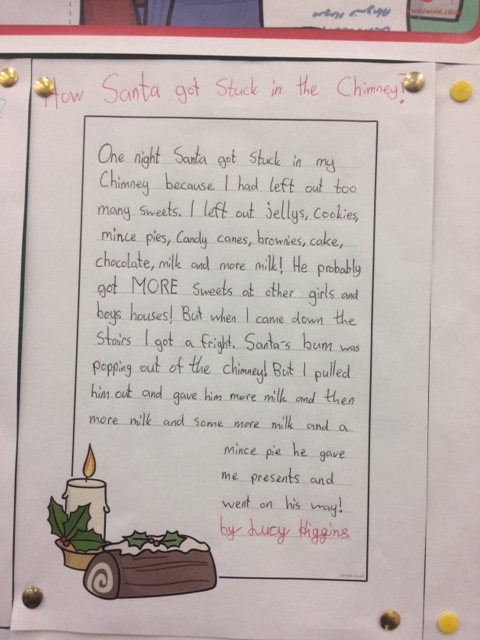 How Santa got Stuck in the Chimney!
One night Santa got Stuck in my
Chimney because I had left out too
many sweets. I left out jellys, Cookies,
mince pies, Candy canes, brownies, cake,
chocolate, milk and more milk! He probably
got MORE sweets at other girls and
boys houses! But when I came down the
Stairs I got a fright. Santa-s bum was
popping out of the chimney! But I pulled
him out and gave him more milk and then
more milk and some more milk and a
mince pie he gave
me presents and
went on his way!
by Lucy Higgins